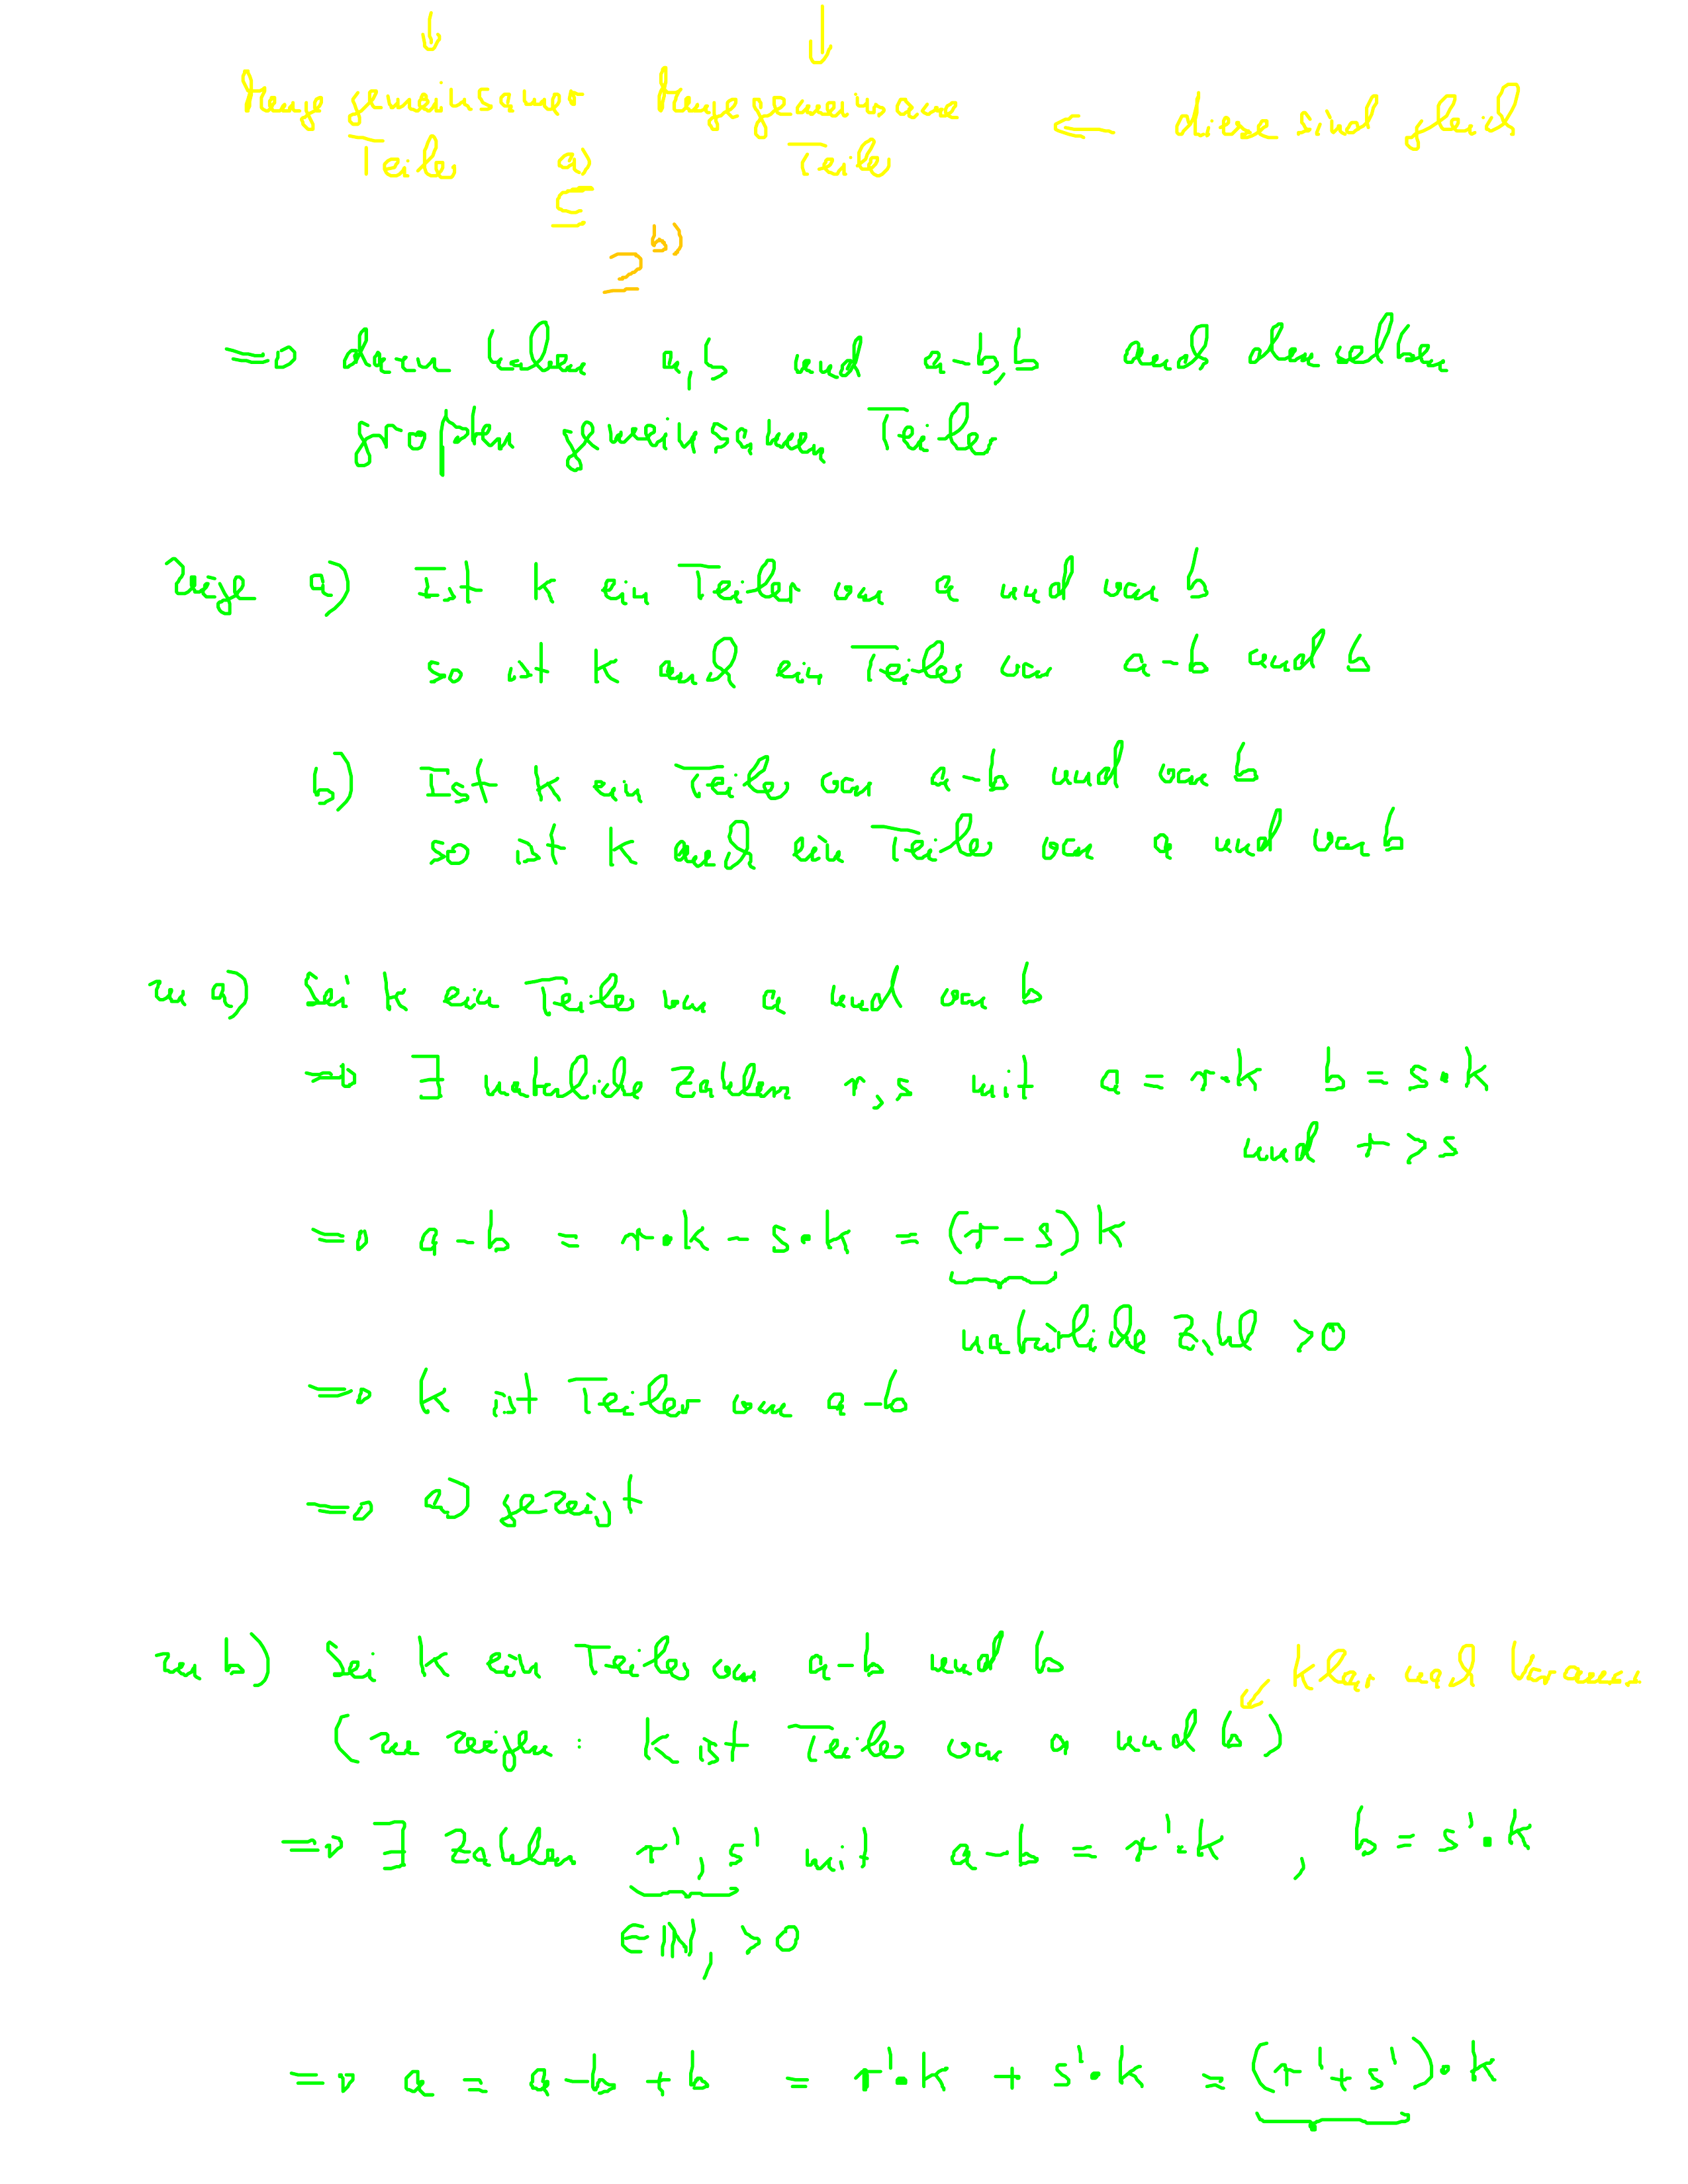 ↓ ↓
Menge gemeinsamer Menge gemeinsame ⇐ diese sind gleich
Teiler a) Teiler
⊆
⊇ b)
⇒ dann haben a,b und a-b,b auch denselben
größten gemeinsamen Teiler
Zeige a) Ist k ein Teiler von a und von b
so ist k auch ein Teiler von a-b und b
b) Ist k ein Teiler von a-b und von b
so ist k auch ein Teiler von a und von b
zu a) Sei k ein Teiler von a und von b
⇒ ∃ natürliche Zahlen r,s mit a = r·k b = s·k
und r > s
⇒ a-b = r·k - s·k = (r-s)k
natürliche Zahl >0
⇒ k ist Teiler von a-b
⇒ a) gezeigt
zu b) Sei k ein Teiler von a-b und b
klar nach Voraus
(zu zeigen: k ist Teiler von a und b)
⇒ ∃ Zahlen r', s' mit a-b = r'·k , b = s'·k
∈ ℕ, >0
⇒ a = a-b+b = r'·k + s'·k = (r'+s')·k